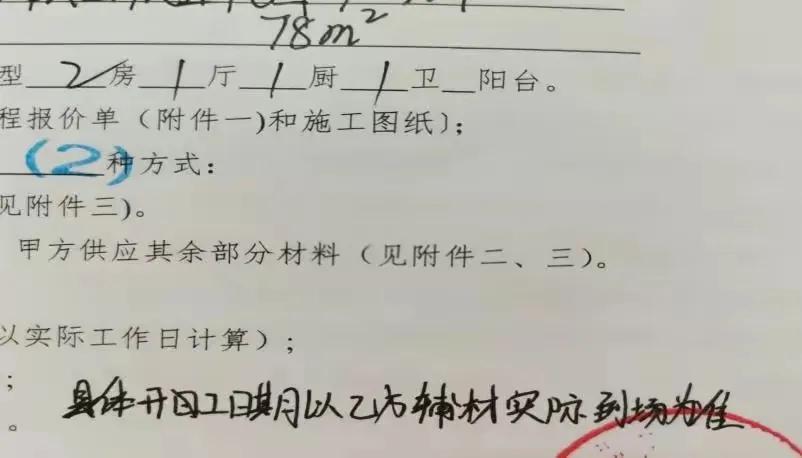 78m²
型 2 房 1 厅 1 厨 1 卫 阳台。
程报价单（附件一)和施工图纸〕;
(2)种方式：
见附件三)。
甲方供应其余部分材料（见附件二、三）。
以实际工作日计算）;
;
具体开工日期以乙方辅材实际到场为准
。